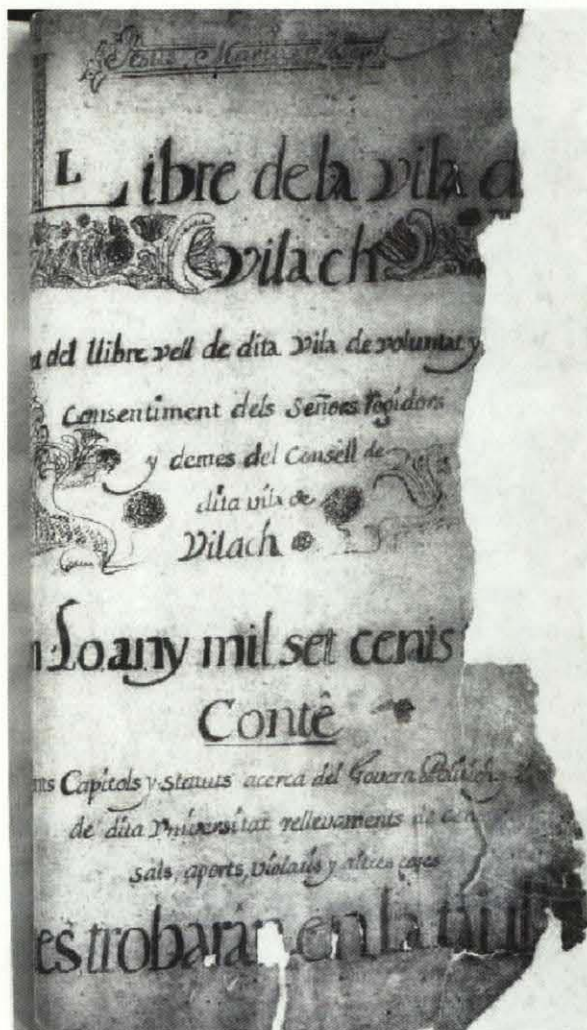 Jesus, Maria
L ibre de la vila d
vilach
del llibre vell de dita vila de voluntat y
Consentiment dels Señors Regidors
y demes del Consell de
dita vila de
Vilach
Lo any mil set cents
Contê
nts Capitols y statuts acerca del Govern Politich
de dita Vniversitat rellevaments de cen
sals, aports, violaris y altres coses
es trobaran en la